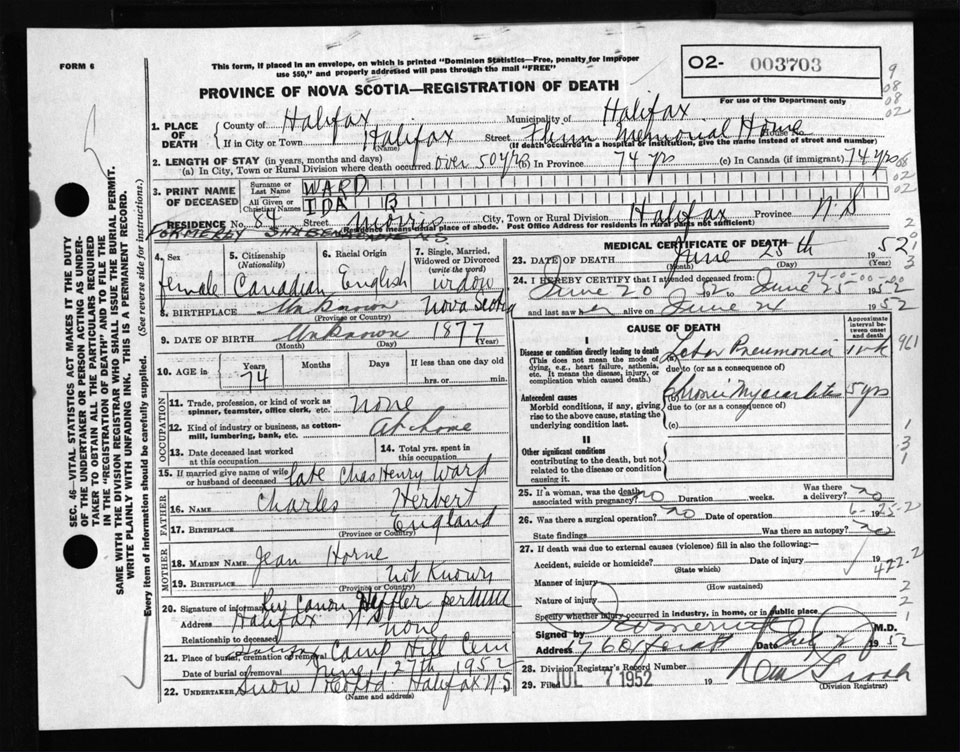 FORM 6
This form, if placed in an envelope, on which is printed "Dominion Statistics—Free, penalty for improper
use $50," and properly addressed will pass through the mail "FREE"
O2- 003703
For use of the Department only
PROVINCE OF NOVA SCOTIA—REGISTRATION OF DEATH
1. PLACE OF DEATH County of Halifax Municipality of Halifax
If in City or Town Halifax (Name) Street Flinn Memorial Home House No.
(If death occurred in a hospital or institution, give the name instead of street and number)
2. LENGTH OF STAY (in years, months and days)
(a) In City, Town or Rural Division where death occurred over 50 yrs (b) In Province 74 yrs (c) In Canada (if immigrant) 74 yrs
3. PRINT NAME OF DECEASED Surname or Last Name WARD
All Given or Christian Names IDA B
RESIDENCE No. 84 Street Morris City, Town or Rural Division Halifax Province N.S
(Residence means usual place of abode. Post Office Address for residents in rural parts not sufficient)
FORMERLY
4. Sex female
5. Citizenship (Nationality) Canadian
6. Racial Origin English
7. Single, Married, Widowed or Divorced (write the word) widow
8. BIRTHPLACE Unknown Nova Scotia
(Province or Country)
9. DATE OF BIRTH Unknown 1877
(Month) (Day) (Year)
10. AGE in Years 74 Months Days If less than one day old
hrs. or min.
OCCUPATION
11. Trade, profession, or kind of work as spinner, teamster, office clerk, etc. none
12. Kind of industry or business, as cotton-mill, lumbering, bank, etc. At home
13. Date deceased last worked at this occupation
14. Total yrs. spent in this occupation
15. If married give name of wife or husband of deceased late Chas Henry Ward
FATHER
16. NAME Charles Herbert
17. BIRTHPLACE England
(Province or Country)
MOTHER
18. MAIDEN NAME Jean Horne
19. BIRTHPLACE not known
(Province or Country)
20. Signature of informant Rev Canon Heffler per
Address Halifax N S
Relationship to deceased none
21. Place of burial, cremation or removal Halifax Camp Hill Cem
Date of burial or removal June 27th 1952
22. UNDERTAKER Snow & Co Ltd Halifax N S
(Name and address)
MEDICAL CERTIFICATE OF DEATH
23. DATE OF DEATH June 25th 1952
(Month) (Day) (Year)
24. I HEREBY CERTIFY that I attended deceased from:
June 20 1952 to June 25 1952
and last saw her alive on June 24 1952
CAUSE OF DEATH
Approximate interval between onset and death
I
Disease or condition directly leading to death
(This does not mean the mode of dying, e.g., heart failure, asthenia, etc. It means the disease, injury, or complication which caused death.)
(a) Lobar Pneumonia 1 wk
due to (or as a consequence of)
Antecedent causes
Morbid conditions, if any, giving rise to the above cause, stating the underlying condition last.
(b) Chronic Myocarditis 5 yrs
due to (or as a consequence of)
(c)
II
Other significant conditions
contributing to the death, but not related to the disease or condition causing it.
25. If a woman, was the death associated with pregnancy? no Duration weeks. Was there a delivery? no
26. Was there a surgical operation? no Date of operation
State findings Was there an autopsy? no
27. If death was due to external causes (violence) fill in also the following:—
Accident, suicide or homicide? Date of injury 19
(State which)
Manner of injury
(How sustained)
Nature of injury
Specify whether injury occurred in industry, in home, or in public place
Signed by M.D.
Address Date July 2 1952
28. Division Registrar's Record Number
29. Filed JUL 7 1952 19
(Division Registrar)
SEC. 46—VITAL STATISTICS ACT MAKES IT THE DUTY
OF THE UNDERTAKER OR PERSON ACTING AS UNDER-
TAKER TO OBTAIN ALL THE PARTICULARS REQUIRED
IN THE "REGISTRATION OF DEATH" AND TO FILE THE
SAME WITH THE DIVISION REGISTRAR WHO SHALL ISSUE THE BURIAL PERMIT.
WRITE PLAINLY WITH UNFADING INK. THIS IS A PERMANENT RECORD.
Every item of information should be carefully supplied. (See reverse side for instructions.)
9
08
08
02
422.2